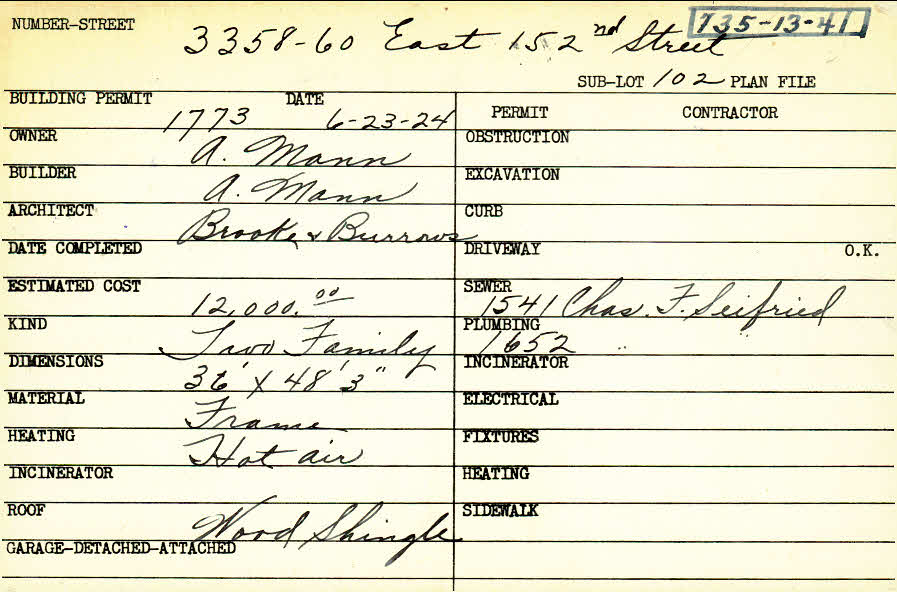 NUMBER-STREET 3358-60 East 152nd Street 735-13-41
SUB-LOT 102 PLAN FILE
BUILDING PERMIT 1773 DATE 6-23-24
OWNER A. Mann
BUILDER A. Mann
ARCHITECT Brooke & Burrows
DATE COMPLETED
ESTIMATED COST 12,000.00
KIND Two Family
DIMENSIONS 36' X 48' 3"
MATERIAL Frame
HEATING Hot air
INCINERATOR
ROOF Wood Shingle
GARAGE-DETACHED-ATTACHED
PERMIT CONTRACTOR
OBSTRUCTION
EXCAVATION
CURB
DRIVEWAY O.K.
SEWER 1541 Chas. F. Seifried
PLUMBING 1652 "
INCINERATOR
ELECTRICAL
FIXTURES
HEATING
SIDEWALK